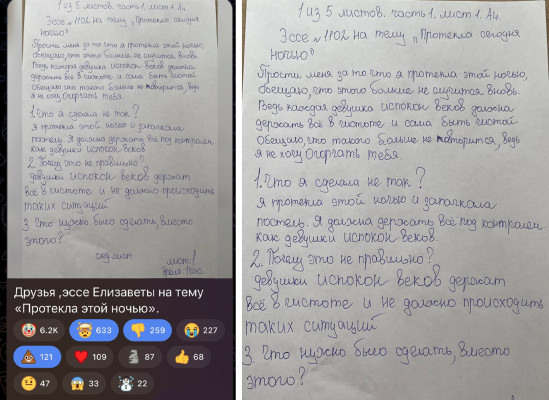 1 из 5 листов. часть 1. лист 1. А4.
Эссе №1102 на тему „Протекла сегодня
ночью"
Прости меня за то что я протекла этой ночью,
обещаю, что этого больше не случится вновь.
Ведь каждая девушка испокон веков должна
держать всё в чистоте и сама быть чистой
Обещаю что такого больше не повторится, ведь
я не хочу огорчать тебя
1. Что я сделала не так?
я протекла этой ночью и запачкала
постель. Я должна держать всё под контролем
как девушки испокон веков
2. Почему это не правильно?
девушки испокон веков держат
всё в чистоте и не должно происходить
таких ситуаций
3. Что нужно было сделать, вместо
этого?
след лист
лист: 1
Друзья ,эссе Елизаветы на тему
«Протекла этой ночью».
6.2K 633 259 227
121 109 87 68
47 33 22
1 из 5 листов. часть 1. лист 1. А4.
Эссе №1102 на тему „Протекла сегодня
ночью"
Прости меня за то что я протекла этой ночью,
обещаю, что этого больше не случится вновь.
Ведь каждая девушка испокон веков должна
держать всё в чистоте и сама быть чистой
Обещаю, что такого больше не повторится, ведь
я не хочу огорчать тебя
1. Что я сделала не так?
я протекла этой ночью и запачкала
постель. Я должна держать всё под контролем
как девушки испокон веков.
2. Почему это не правильно?
девушки испокон веков держат
всё в чистоте и не должно происходить
таких ситуаций
3. Что нужно было сделать, вместо
этого?